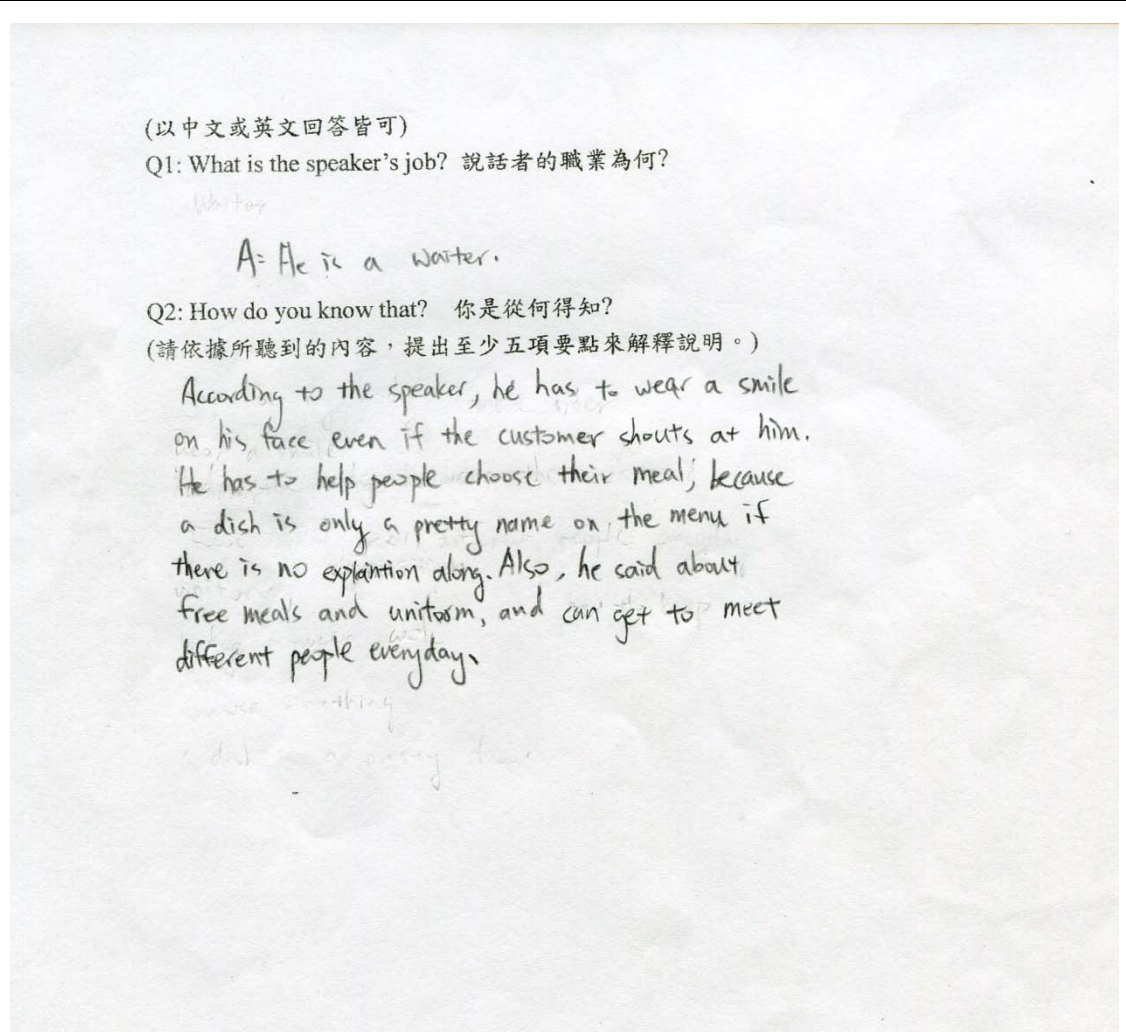 (以中文或英文回答皆可)
Q1: What is the speaker's job? 說話者的職業為何?
Waiter
A: He is a waiter.
Q2: How do you know that? 你是從何得知?
(請依據所聽到的內容，提出至少五項要點來解釋說明。)
According to the speaker, he has to wear a smile
on his face even if the customer shouts at him.
He has to help people choose their meal, because
a dish is only a pretty name on the menu if
there is no explaintion along. Also, he said about
free meals and uniform, and can get to meet
different people everyday、
thing
a pretty